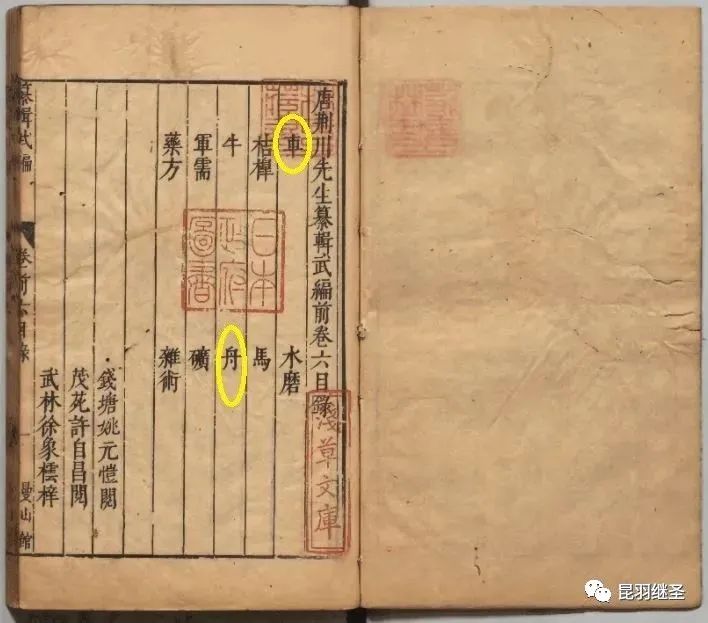 唐荆川先生纂輯武編前卷六目錄
車 水磨
桔槔 馬
牛 舟
軍需 礦
藥方 雜術
錢塘姚元愷閱
茂苑許自昌閱
武林徐象橒梓
纂輯武編 卷前六目錄 一 曼山館
日本政府圖書
淺草文庫
昆羽继圣